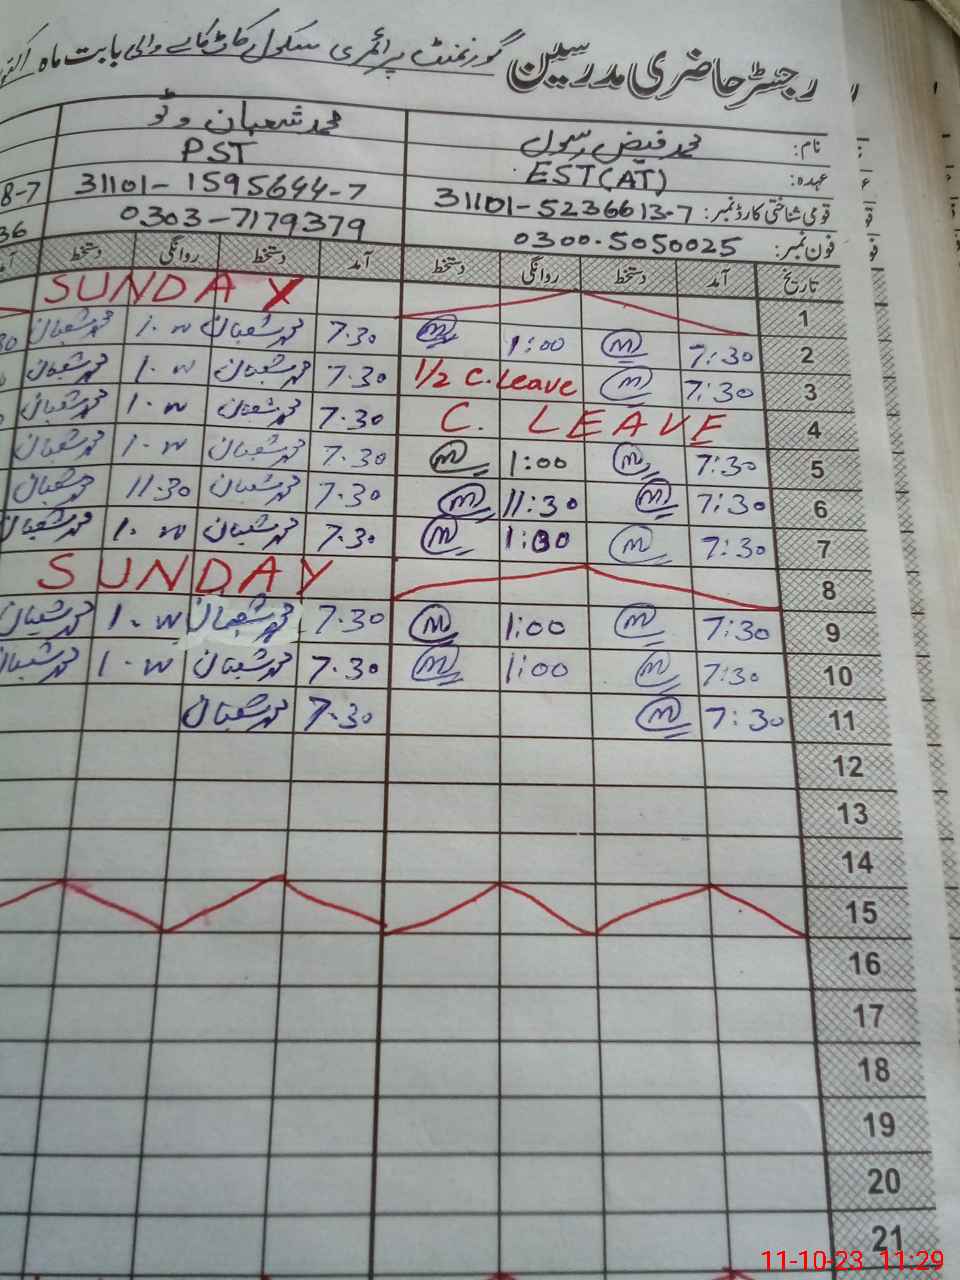 رجسٹر حاضری مدرسین گورنمنٹ پرائمری سکول والی بابت ماہ
نام: محمد فیض رسول محمد شعبان وٹو
عہدہ: EST(AT) PST
قومی شناختی کارڈ نمبر: 31101-5236613-7 31101-1595644-7 8-7
فون نمبر: 0300-5050025 0303-7179379 36
تاریخ آمد دستخط روانگی دستخط آمد دستخط روانگی دستخط
1 SUNDAY
2 7:30 m 1:00 m 7.30 محمد شعبان 1.00 محمد شعبان
3 7:30 m 1/2 C.Leave 7.30 محمد شعبان 1.00 محمد شعبان
4 C. LEAVE 7.30 محمد شعبان 1.00 محمد شعبان
5 7:30 m 1:00 m 7.30 محمد شعبان 1.00 محمد شعبان
6 7:30 m 11:30 m 7.30 محمد شعبان 11.30 محمد شعبان
7 7:30 m 1:00 m 7.30 محمد شعبان 1.00 محمد شعبان
8 SUNDAY
9 7:30 m 1:00 m 7.30 محمد شعبان 1.00 محمد شعبان
10 7:30 m 1:00 m 7.30 محمد شعبان 1.00 محمد شعبان
11 7:30 m 7.30 محمد شعبان
12
13
14
15
16
17
18
19
20
21
11-10-23 11:29